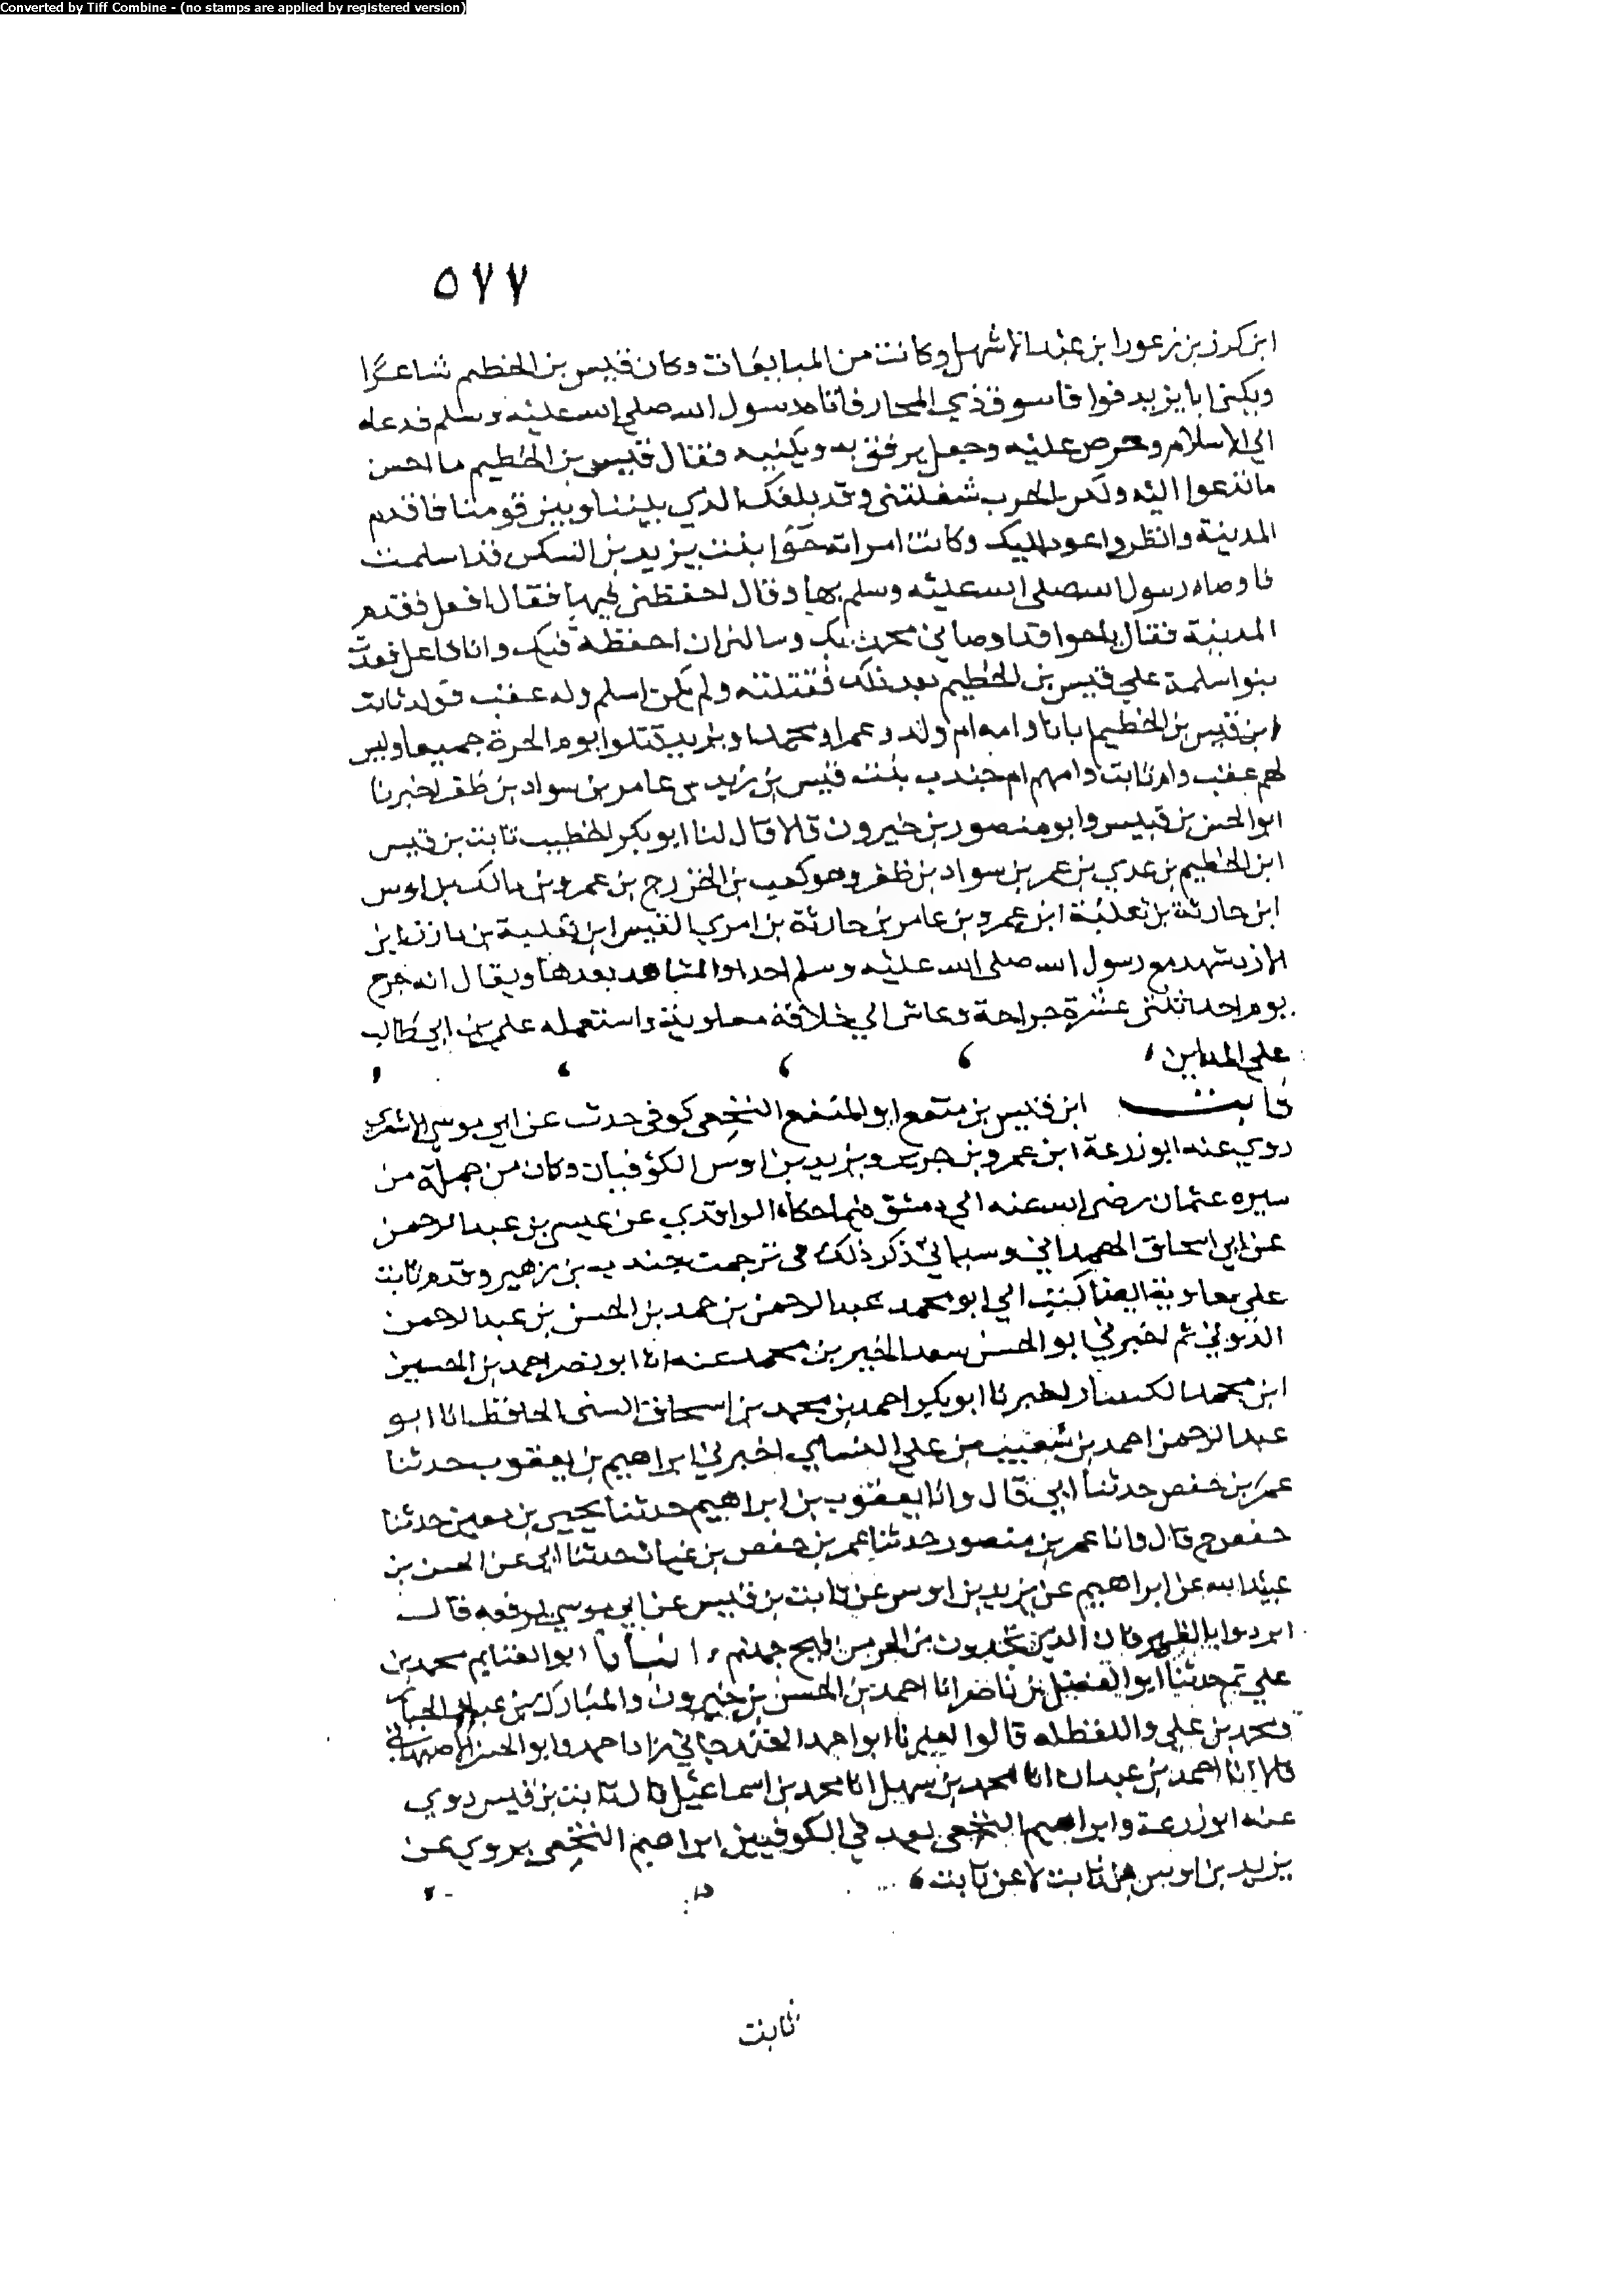 Converted by Tiff Combine - (no stamps are applied by registered version)
٥٧٧
ابن كرز بن زعورا بن عبد الاشهل وكانت من المبايعات وكان قيس بن الخطيم شاعرا
ويكنى ابا يزيد فوافا سوق ذي المجاز فاتاه رسول الله صلى الله عليه وسلم فدعاه
الي الاسلام وحرص عليه وجعل يرفق به ويكنيه فقال قيس بن الخطيم ما احسن
ما تدعوا اليه ولكن الحرب شغلتني وقد بلغك الذي بيننا وبين قومنا فاقدم
المدينة وانظر واعود اليك وكانت امراته حوا بنت يزيد بن السكن قد اسلمت
فاوصاه رسول الله صلى الله عليه وسلم بها وقال احفظني فيها فقال افعل فقدم
المدينة فقال ياحوا قد اوصاني محمد بك وسالني ان احفظه فيك وانا فاعل فعدت
بنوا سلمة علي قيس بن الخطيم بعد ذلك فقتلته ولم يكن اسلم وله عقب فولد ثابت
ابن قيس بن الخطيم ابانا وامه ام ولد وعمرا ومحمدا ويزيد قتلوا يوم الحرة جميعا وليس
لهم عقب وام ثابت وامهم ام جندب بنت قيس بن زيد بن عامر بن سواد بن ظفر اخبرنا
ابو الحسن بن قبيس وابو منصور بن خيرون قالا قال لنا ابو بكر الخطيب ثابت بن قيس
ابن الخطيم بن عدي بن عمر بن سواد بن ظفر وهو كعب بن الخزرج بن عمرو بن مالك بن اوس
ابن حارثة بن ثعلبة ابن عمرو بن عامر بن حارثة بن امري القيس ابن ثعلبة بن مازن بن
الازد شهد مع رسول الله صلى الله عليه وسلم احدا والمشاهد بعدها ويقال انه جرح
يوم احد اثنتي عشرة جراحة وعاش الي خلافة معاوية واستعمله علي بن ابي طالب
علي المداين
ثابت ابن قيس بن منقع ابو المنقع النخعي كوفي حدث عن ابي موسى الاشعري
روي عنه ابو زرعة ابن عمرو بن جرير ويزيد بن اوس الكوفيان وكان من جملة من
سيره عثمان رضي الله عنه الي دمشق فيما حكاه الواقدي عن عيسى بن عبد الرحمن
عن ابي اسحاق الهمداني وسياتي ذكر ذلك في ترجمت جندب بن زهير وقدم ثابت
علي معاوية ايضا كتب الي ابو محمد عبد الرحمن بن حمد بن الحسن بن عبد الرحمن
الدوني ثم اخبرني ابو الحسن سعد الخير بن محمد عنه انا ابو نصر احمد بن الحسين
ابن محمد الكسار اخبرنا ابو بكر احمد بن محمد بن اسحاق السني الحافظ انا ابو
عبد الرحمن احمد بن شعيب بن علي النساي اخبرني ابراهيم بن يعقوب حدثنا
عمر بن حفص حدثنا ابي قال وانا يعقوب بن ابراهيم حدثنا يحيى بن معين حدثنا
حفص ح قال وانا عمر بن منصور حدثنا عمر بن حفص بن غياث حدثنا ابي عن الحسن بن
عبيد الله عن ابراهيم عن يزيد بن اوس عن ثابت بن قيس عن ابي موسى يرفعه قال
ابردوا بالظهر فان الذين تجدون من الحر من فيح جهنم انبانا ابو الغنايم محمد بن
علي ثم حدثنا ابو الفضل بن ناصر انا احمد بن الحسن بن خيرون والمبارك بن عبد الجبار
ومحمد بن علي واللفظ له قالوا اخبرنا ابو احمد الغندجاني زاد احمد وابو الحسن الاصبهاني
قالا انا احمد بن عبدان انا محمد بن سهل انا محمد بن اسماعيل قال ثابت بن قيس روي
عنه ابو زرعة وابراهيم النخعي يعد في الكوفيين ابراهيم النخعي يروي عن
يزيد بن اوس عن ثابت لا عن ثابت
ثابت